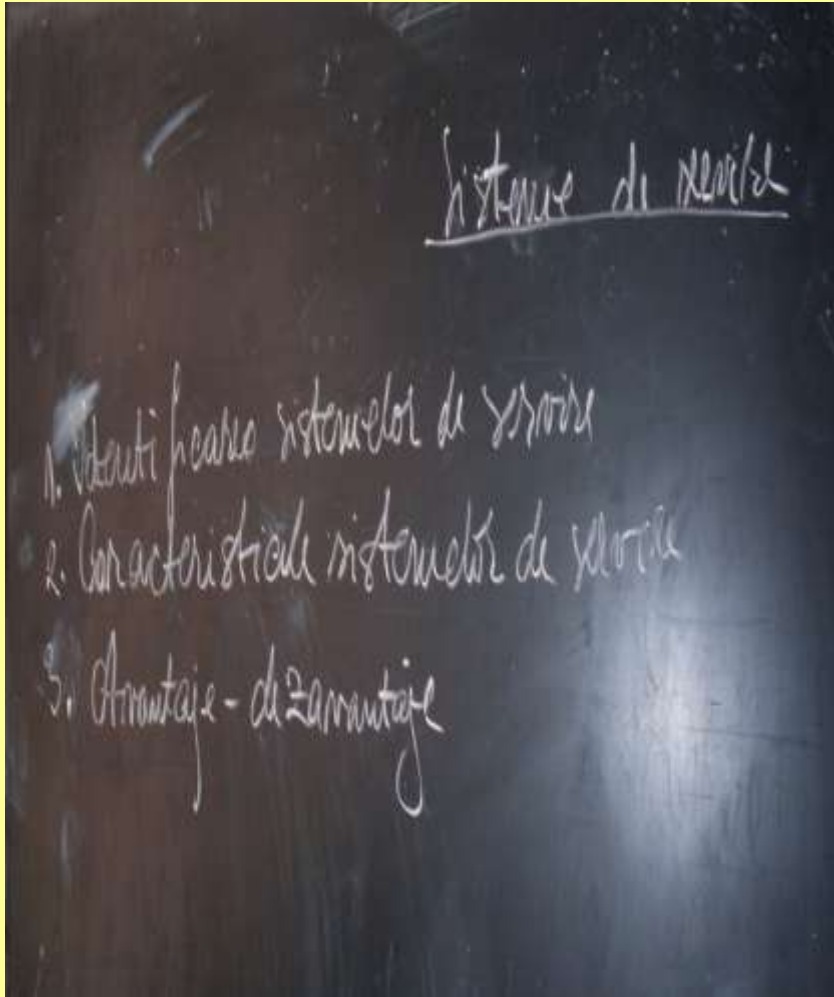 Sisteme de servire
1. Identificarea sistemelor de servire
2. Caracteristicile sistemelor de servire
3. Avantaje - dezavantaje